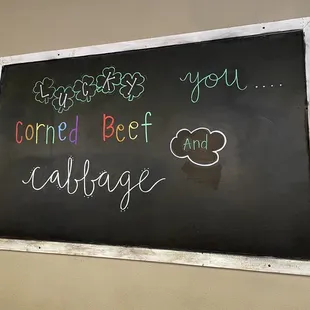 LUCKY you ....
Corned Beef
And
cabbage